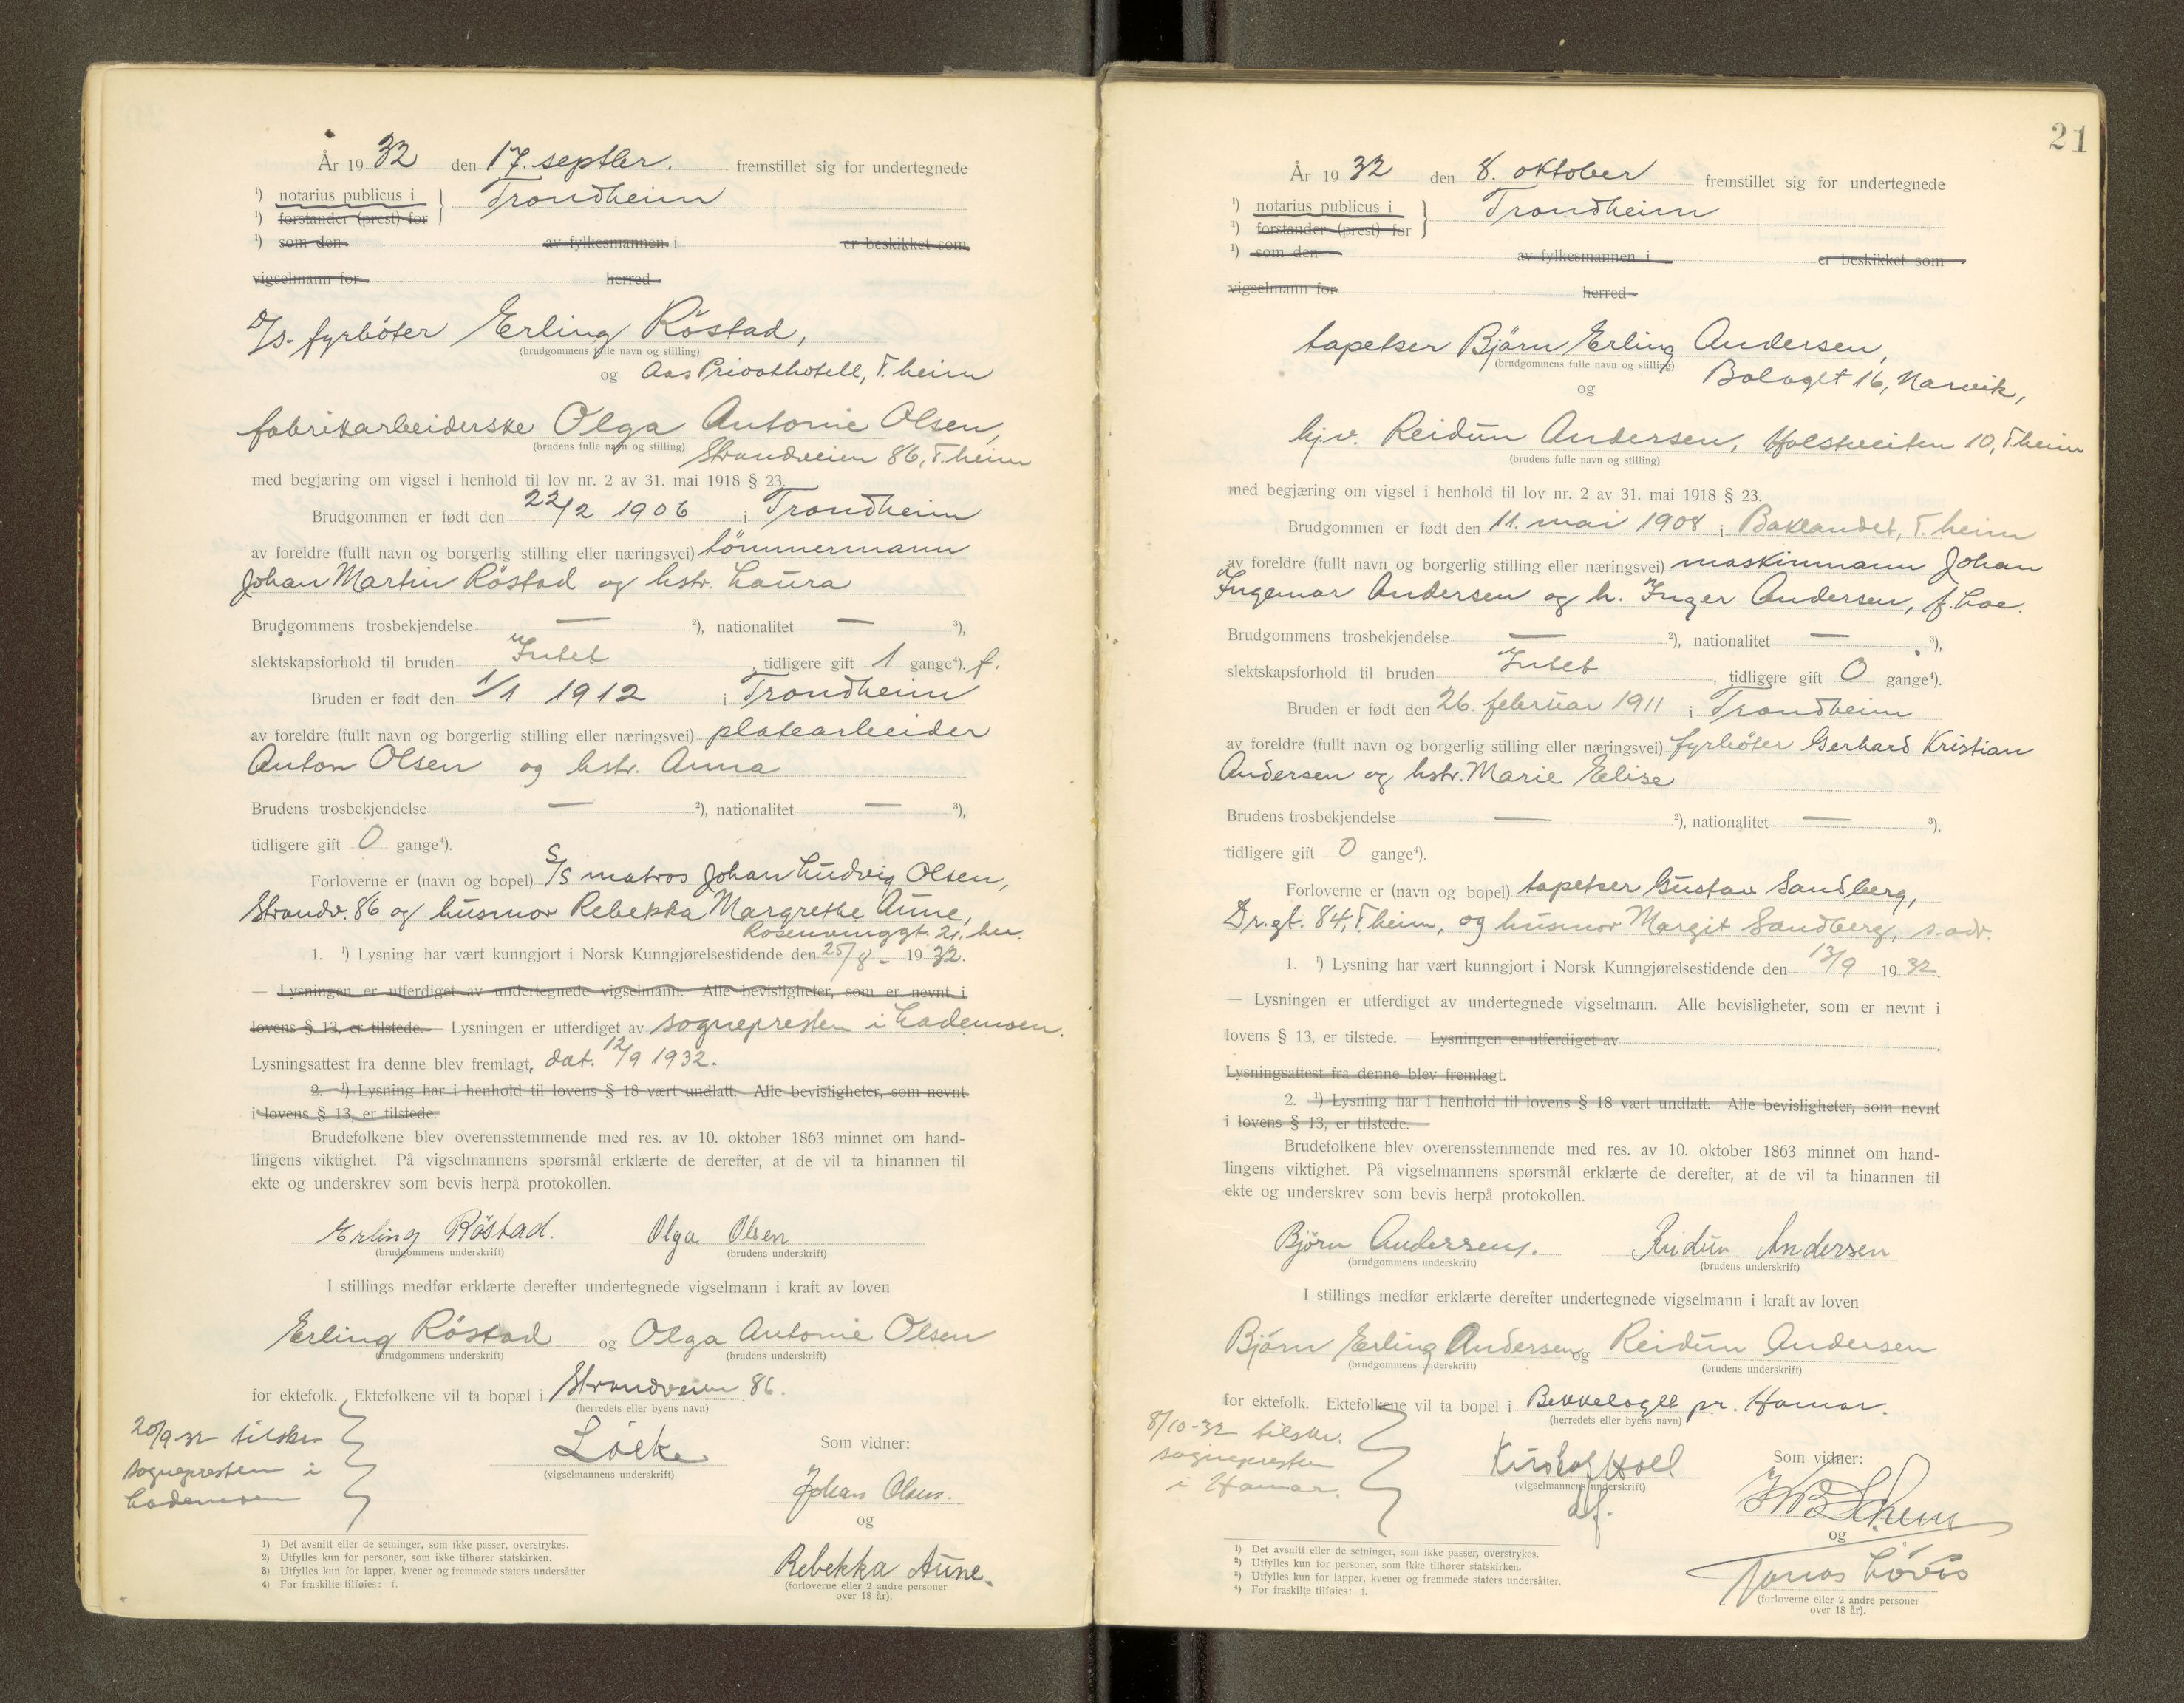 År 1932 den 17. septbr. fremstillet sig for undertegnede
¹) notarius publicus i } Trondheim
¹) forstander (prest) for
¹) som den av fylkesmannen i er beskikket som
vigselmann for herred
D/S. fyrbøter Erling Röstad,
(brudgommens fulle navn og stilling)
og Aas Privathotell, T.heim
fabrikarbeiderske Olga Antonie Olsen,
(brudens fulle navn og stilling) Strandveien 86, T.heim
med begjæring om vigsel i henhold til lov nr. 2 av 31. mai 1918 § 23.
Brudgommen er født den 22/2 1906 i Trondheim
av foreldre (fullt navn og borgerlig stilling eller næringsvei) tömmermann
Johan Martin Röstad og hstr. Laura
Brudgommens trosbekjendelse — ²), nationalitet — ³),
slektskapsforhold til bruden Intet, tidligere gift 1 gange⁴). f.
Bruden er født den 1/1 1912 i Trondheim
av foreldre (fullt navn og borgerlig stilling eller næringsvei) platearbeider
Anton Olsen og hstr. Anna
Brudens trosbekjendelse — ²), nationalitet — ³),
tidligere gift 0 gange⁴).
Forloverne er (navn og bopel) S/S matros Johan Ludvig Olsen,
Strandv. 86 og husmor Rebekka Margrethe Aune,
Rosenvinggt. 21, her.
1. ¹) Lysning har vært kunngjort i Norsk Kunngjørelsestidende den 25/8 - 1932.
— Lysningen er utferdiget av undertegnede vigselmann. Alle bevisligheter, som er nevnt i
lovens § 13, er tilstede. — Lysningen er utferdiget av sognepresten i Lademoen.
Lysningsattest fra denne blev fremlagt, dat. 12/9 1932.
2. ¹) Lysning har i henhold til lovens § 18 vært undlatt. Alle bevisligheter, som nevnt
i lovens § 13, er tilstede.
Brudefolkene blev overensstemmende med res. av 10. oktober 1863 minnet om hand-
lingens viktighet. På vigselmannens spørsmål erklærte de derefter, at de vil ta hinannen til
ekte og underskrev som bevis herpå protokollen.
Erling Röstad. Olga Olsen
(brudgommens underskrift) (brudens underskrift)
I stillings medfør erklærte derefter undertegnede vigselmann i kraft av loven
Erling Röstad og Olga Antonie Olsen
(brudgommens underskrift) (brudens underskrift)
for ektefolk. Ektefolkene vil ta bopæl i Strandveien 86.
(herredets eller byens navn)
20/9 32 tilskr.
sognepresten i
Lademoen
(vigselmannens underskrift)
Som vidner:
Johan Olsen.
og
Rebekka Aune.
(forloverne eller 2 andre personer
over 18 år).
1) Det avsnitt eller de setninger, som ikke passer, overstrykes.
2) Utfylles kun for personer, som ikke tilhører statskirken.
3) Utfylles kun for lapper, kvener og fremmede staters undersåtter
4) For fraskilte tilføies: f.
21
År 1932 den 8. oktober fremstillet sig for undertegnede
¹) notarius publicus i } Trondheim
¹) forstander (prest) for
¹) som den av fylkesmannen i er beskikket som
vigselmann for herred
tapetser Björn Erling Andersen,
(brudgommens fulle navn og stilling)
og Bolaget 16, Narvik,
hjv. Reidun Andersen, Holstveiten 10, T.heim
(brudens fulle navn og stilling)
med begjæring om vigsel i henhold til lov nr. 2 av 31. mai 1918 § 23.
Brudgommen er født den 11. mai 1908 i Baklandet, T.heim
av foreldre (fullt navn og borgerlig stilling eller næringsvei) maskinmann Johan
Ingemar Andersen og h. Inger Andersen, f. Loe.
Brudgommens trosbekjendelse — ²), nationalitet — ³),
slektskapsforhold til bruden Intet, tidligere gift 0 gange⁴).
Bruden er født den 26. februar 1911 i Trondheim
av foreldre (fullt navn og borgerlig stilling eller næringsvei) fyrbøter Gerhard Kristian
Andersen og hstr. Marie Elise
Brudens trosbekjendelse — ²), nationalitet — ³),
tidligere gift 0 gange⁴).
Forloverne er (navn og bopel) tapetser Gustav Sandberg,
Dr.gt. 84, T.heim, og husmor Margit Sandberg, s. adr.
1. ¹) Lysning har vært kunngjort i Norsk Kunngjørelsestidende den 13/9 1932.
— Lysningen er utferdiget av undertegnede vigselmann. Alle bevisligheter, som er nevnt i
lovens § 13, er tilstede. — Lysningen er utferdiget av
Lysningsattest fra denne blev fremlagt.
2. ¹) Lysning har i henhold til lovens § 18 vært undlatt. Alle bevisligheter, som nevnt
i lovens § 13, er tilstede.
Brudefolkene blev overensstemmende med res. av 10. oktober 1863 minnet om hand-
lingens viktighet. På vigselmannens spørsmål erklærte de derefter, at de vil ta hinannen til
ekte og underskrev som bevis herpå protokollen.
Bjørn Andersen. Reidun Andersen
(brudgommens underskrift) (brudens underskrift)
I stillings medfør erklærte derefter undertegnede vigselmann i kraft av loven
Björn Erling Andersen og Reidun Andersen
(brudgommens underskrift) (brudens underskrift)
for ektefolk. Ektefolkene vil ta bopel i Bekkelaget pr. Hamar.
(herredets eller byens navn)
8/10-32 tilskr.
sognepresten
i Hamar.
(vigselmannens underskrift)
Som vidner:
og
(forloverne eller 2 andre personer
over 18 år).
¹) Det avsnitt eller de setninger, som ikke passer, overstrykes.
²) Utfylles kun for personer, som ikke tilhører statskirken.
³) Utfylles kun for lapper, kvener og fremmede staters undersåtter.
⁴) For fraskilte tilføies: f.